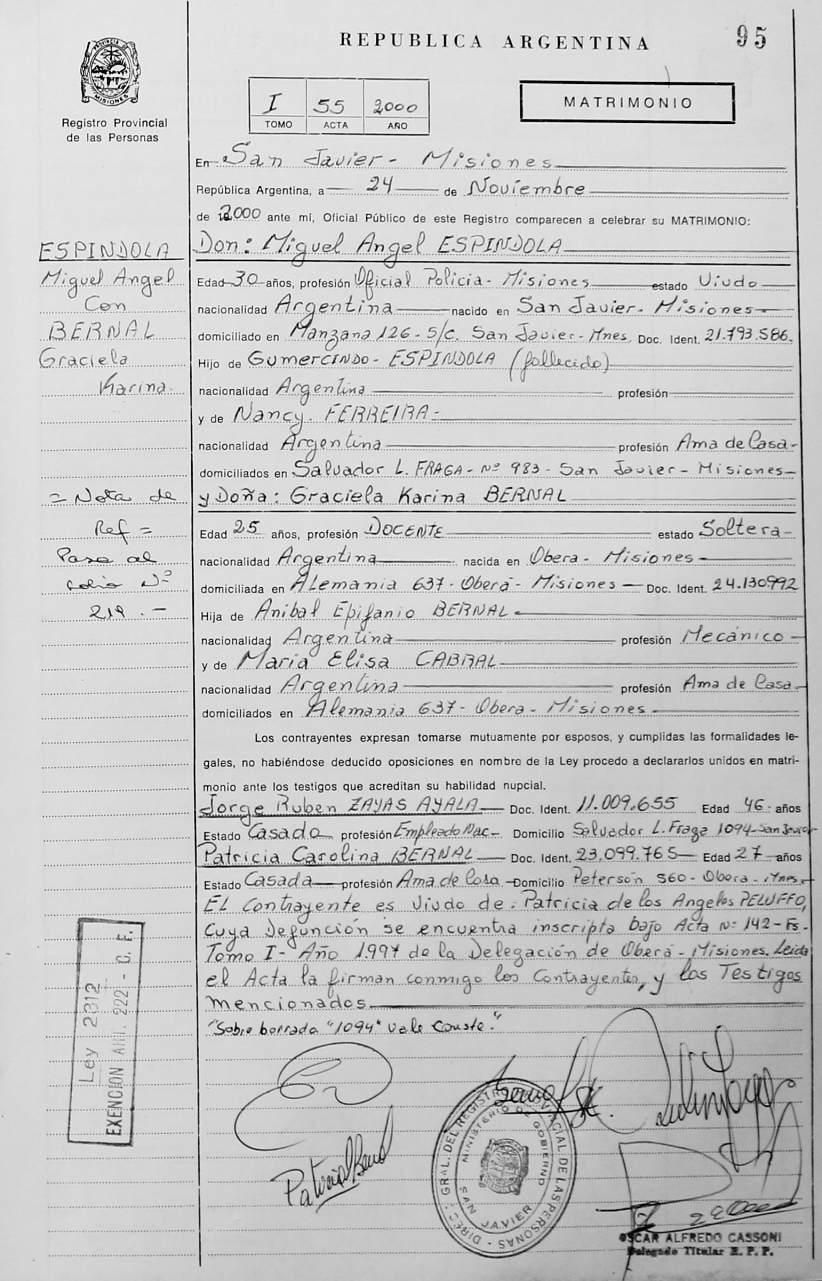 REPUBLICA ARGENTINA
95
PROVINCIA DE MISIONES
Registro Provincial
de las Personas
I 55 2000
TOMO ACTA AÑO
MATRIMONIO
En San Javier - Misiones
República Argentina, a 24 de Noviembre
de 2000 ante mí, Oficial Público de este Registro comparecen a celebrar su MATRIMONIO:
ESPINDOLA
Miguel Angel
Con
BERNAL
Graciela
Karina
= Nota de
Ref =
Pasa al
folio Nº
219.-
Don: Miguel Angel ESPINDOLA
Edad 30 años, profesión Oficial Policia - Misiones estado Viudo
nacionalidad Argentina nacido en San Javier - Misiones
domiciliado en Manzana 126 - S/C. San Javier - Mnes. Doc. Ident. 21.793.586.
Hijo de Gumercindo - ESPINDOLA (fallecido)
nacionalidad Argentina profesión
y de Nancy. FERREIRA -
nacionalidad Argentina profesión Ama de Casa -
domiciliados en Salvador L. FRAGA - Nº 983 - San Javier - Misiones -
y Doña: Graciela Karina BERNAL
Edad 25 años, profesión DOCENTE estado Soltera -
nacionalidad Argentina nacida en Obera - Misiones
domiciliada en Alemania 637 - Oberá - Misiones - Doc. Ident. 24.130992
Hija de Anibal Epifanio BERNAL -
nacionalidad Argentina profesión Mecánico -
y de Maria Elisa CABRAL
nacionalidad Argentina profesión Ama de Casa -
domiciliados en Alemania 637 - Obera - Misiones -
Los contrayentes expresan tomarse mutuamente por esposos, y cumplidas las formalidades le-
gales, no habiéndose deducido oposiciones en nombre de la Ley procedo a declararlos unidos en matri-
monio ante los testigos que acreditan su habilidad nupcial.
Jorge Ruben ZAYAS AYALA Doc. Ident. 11.009.655 Edad 46 años
Estado Casado profesión Empleado Nac. Domicilio Salvador L. Fraga 1094 - San Javier
Patricia Carolina BERNAL Doc. Ident. 23.099.765 Edad 27 años
Estado Casada profesión Ama de Casa Domicilio Peterson 560 - Obera - Mnes.
EL Contrayente es Viudo de. Patricia de los Angeles PELUFFO,
Cuya Defunción se encuentra inscripta bajo Acta Nº 142 - Fs.
Tomo I - Año 1997 de la Delegación de Oberá - Misiones. Leida
el Acta la firman conmigo los Contrayentes, y los Testigos
mencionados
"Sobre borrado "1094" Vale Conste."
Ley 2812
EXENCION ART. 222 - C. F.
DIREC. GRAL. DEL REGISTRO PROVINCIAL DE LAS PERSONAS
MINISTERIO DE GOBIERNO
SAN JAVIER
OSCAR ALFREDO CASSONI
Delegado Titular R. P. P.